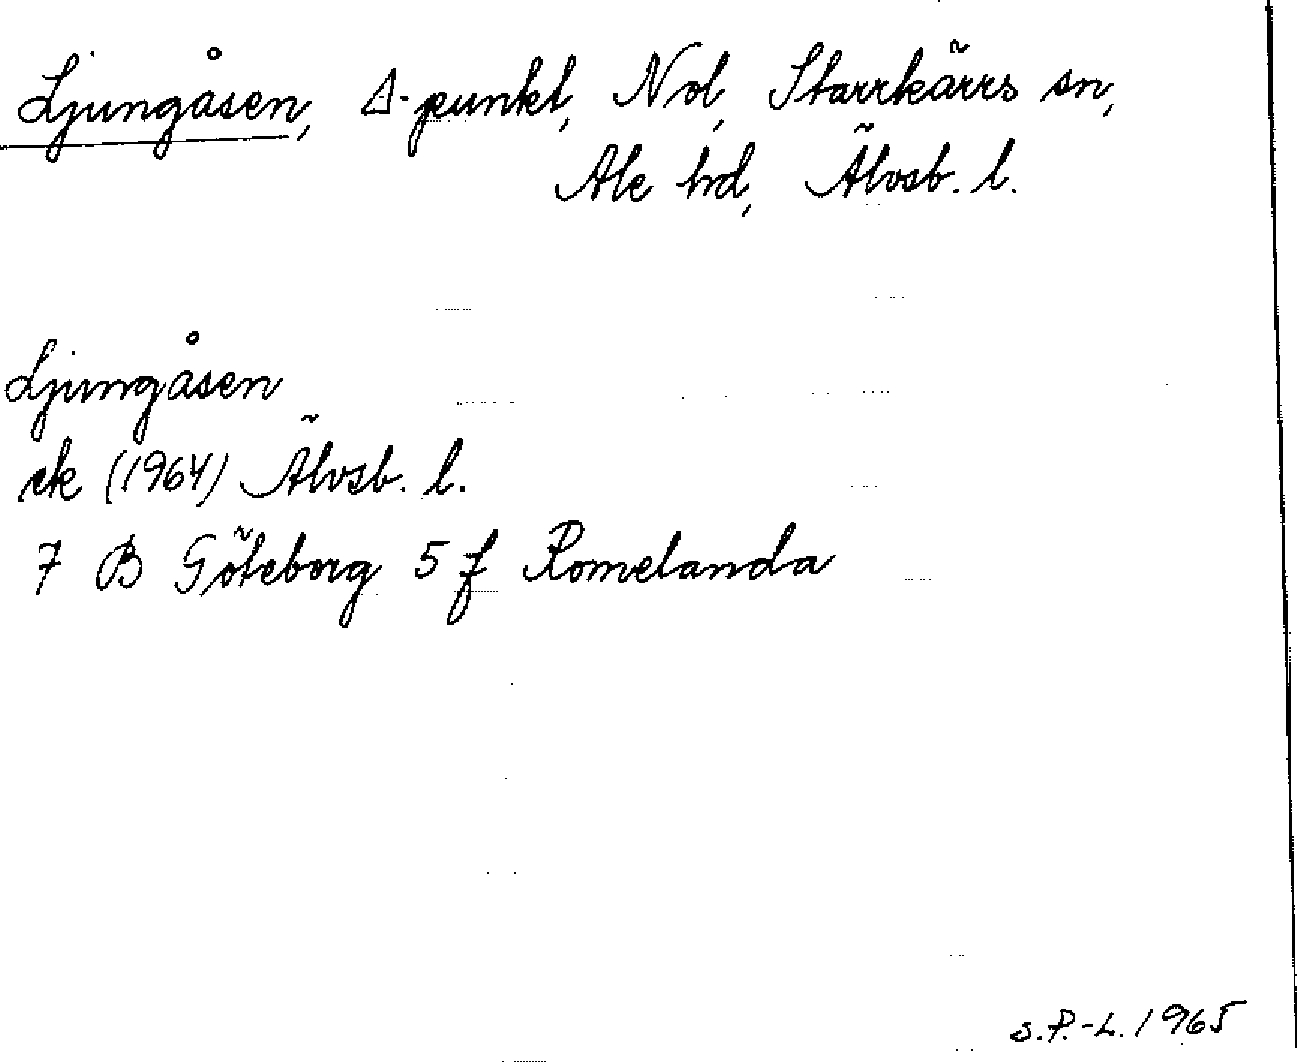 Ljungåsen, Δ-punkt, Nol, Starrkärrs sn,
Ale hd, Älvsb. l.
Ljungåsen
ek (1964) Älvsb. l.
7 B Göteborg 5 f Romelanda
S.P.-L. 1965